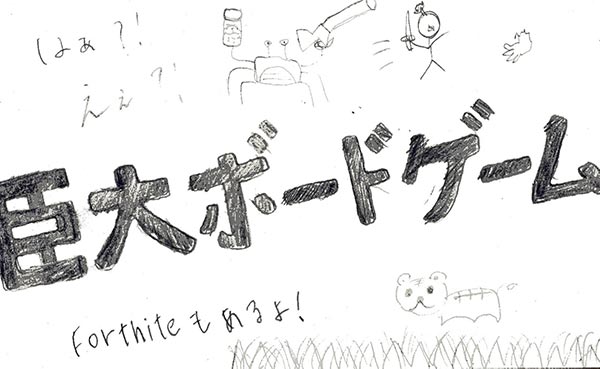 はぁ?!
えぇ?!
臣大ボードゲーム
Forthiteもめるよ!